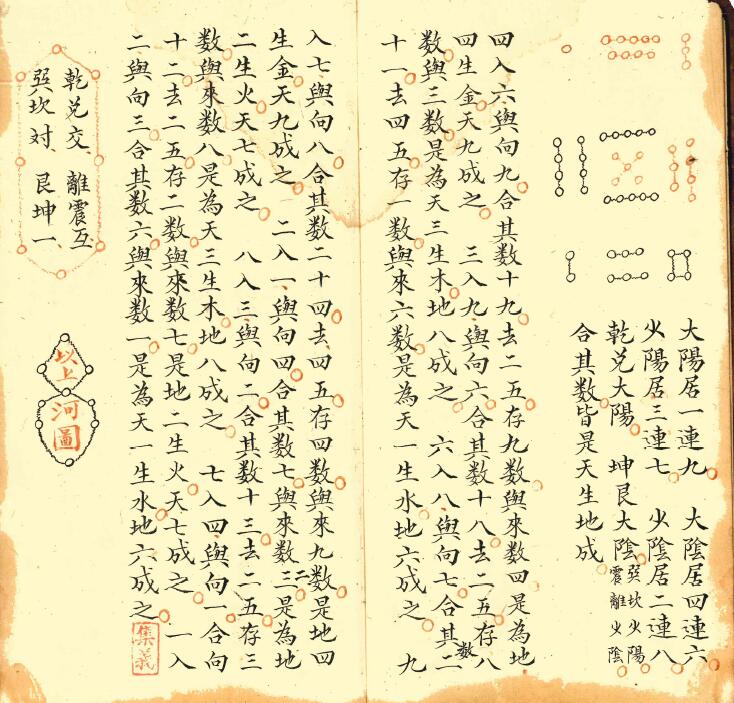 大陽居一連九 大陰居四連六
少陽居三連七 少陰居二連八
乾兌大陽 坤艮大陰 巽坎少陽 震離少陰
合其数皆是天生地成
四入六與向九合其数十九去二五存九数與來数四是為地
四生金天九成之 三入九與向六合其数十八去二五存八
数與三数是為天三生木地八成之 六入八與向七合其数二
十一去四五存一数與來六数是為天一生水地六成之 九
入七與向八合其数二十四去四五存四数與來九数是地四
生金天九成之 二入一與向四合其数七與來数三二是為地
二生火天七成之 八入三與向二合其数十三去二五存三
数與來数八是為天三生木地八成之 七入四與向一合向
十二去二五存二数與來数七是地二生火天七成之 一入
二與向三合其数六與來数一是為天一生水地六成之
集義
乾兌交、離震互、
巽坎対、艮坤一、
以上
河圖